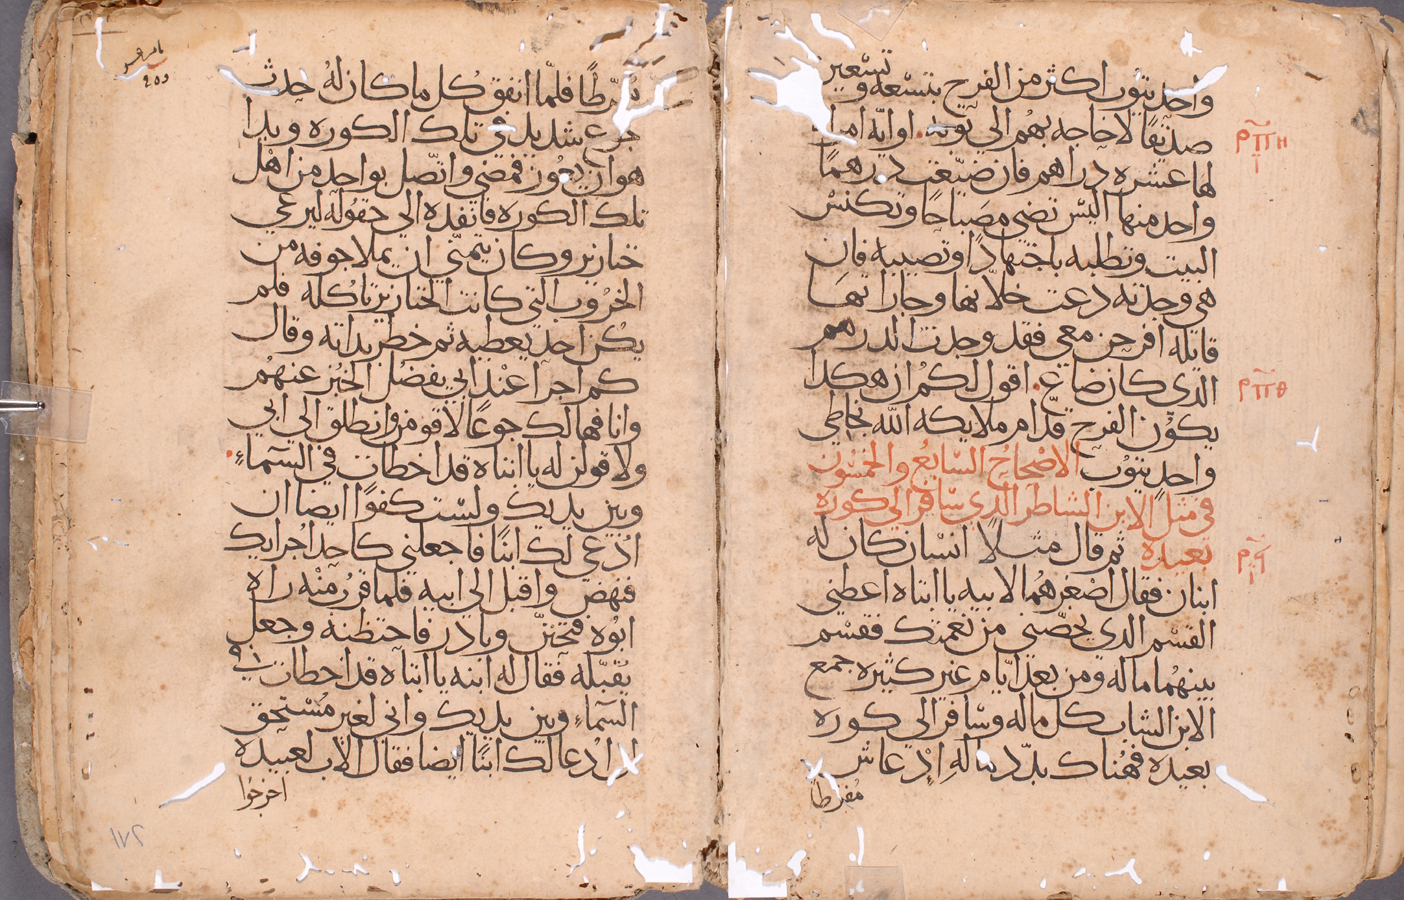 واحد يتوب اكثر من الفرح بتسعه وتسعين
صديقًا لا حاجه بهم الي توبه. او ايّه امراه
لها عشره دراهم فان ضيّعت درهمًا
واحد منها اليس تضي مصباحًا وتكنس
البيت وتطلبه باجتهادًا وتصيبه فان
هي وجدته دعت خلانها وجاراتها
قايله افرحن معي فقد وجدت الدرهم
الدى كان ضاع. اقول لكم ان هكدا
يكون الفرح قدام ملايكه الله بخاطي
واحدٍ يتوب الاصحاح السابع والخمسون
في مثل الابن الشاطر الدى سافر الي كوره
بعيده ثم قال مثلا انسان كان له
ابنان فقال اصغرهما لابيه يا ابتاه اعطني
القسم الدي يخصّني من نعمتك فقسم
بينهما ماله ومن بعد ايّام غير كثيره جمع
الابن الشاب كل ماله وسافر الي كوره
بعيده فهناك بدّد ماله اِدْ عاش
مفرطاً
ⲣ̅ⲡ̅ⲏ
ⲣ̅ⲡ̅ⲑ
ⲣ̅ϥ̅
مفرّطًا فلمّا انفق كل ما كان لهُ حدث
جوع شديد في تلك الكوره وبدا
هو ان يجوز فمضي واتّصل بواحد من اهل
تلك الكوره فانفده الي حقوله ليرعي
خنازير وكان يتمنّي ان يملا جوفه من
الخرّوب التي كانت الخنازير تاكله فلم
يكن احد يعطيه ثم خطر بداته وقال
كم اجرآ عند ابي يفضل الخبز عنهم
وانا فهالك جوعًا لاقومن وانطلق الي ابي
ولاقولن له يا ابتاه قد اخطات في السماءِ
وبين يديك ولست كفوًا ايضا ان
اُدْعي لك ابنًا فاجعلني كاحد اجرايك
فنهض واقبل الي ابيه فلما قرُب منْه راه
ابُوه فتحنّن وبادر فاحتظنه وجعل
يقبّله فقال له ابنه يا ابتاه قد اخطات في
السماءِ وبين يديك واني لغير مُسْتحق
ان ادْعا لك ابنًا ايضا فقال الاب لعبيده
اخرجوا
١٧٢